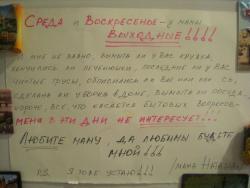 СРЕДА и ВОСКРЕСЕНЬЕ - у мамы
ВЫХОДНЫЕ!!!!
И мне не важно, вымыта ли у вас кружка,
кончились ли печеньки, последние ли у вас
чистые трусы, обписались вы или
сделана ли уборка в доме, вымыта ли посуда
короче, все, что касается бытовых вопросов
МЕНЯ В ЭТИ ДНИ НЕ ИНТЕРЕСУЕТ!!!
ЛЮБИТЕ МАМУ, ДА ЛЮБИМЫ БУДЕТЕ
МНОЙ!!!
P.S. Я тоже устаю!!!
/мама